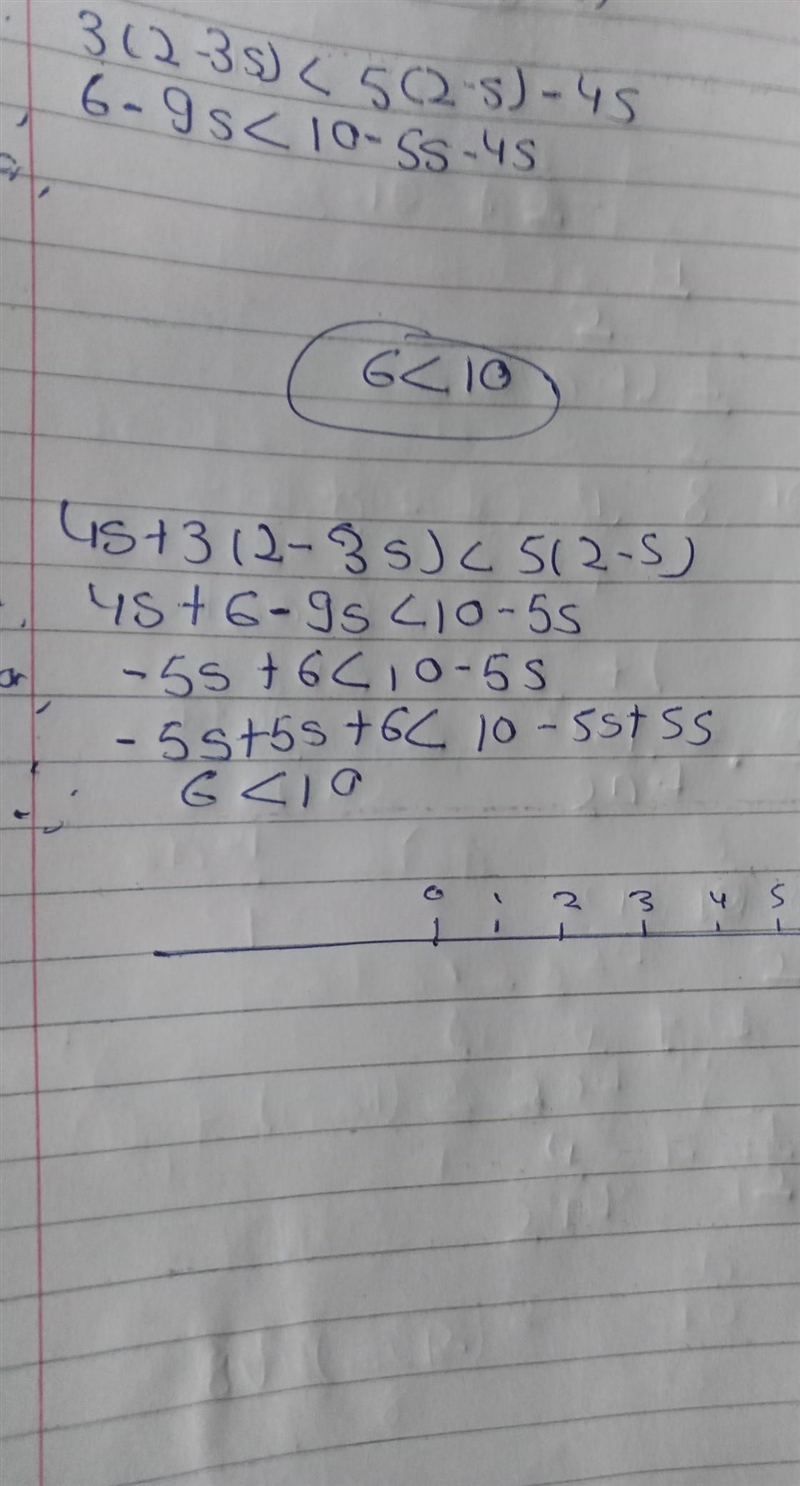 3(2-3s) < 5(2-s)-4s
6-9s < 10-5s-4s
6<10
4s+3(2-3s) < 5(2-s)
4s+6-9s <10-5s
-5s+6<10-5s
or
-5s+5s+6< 10-5s+5s
6 <10
0 1 2 3 4 5